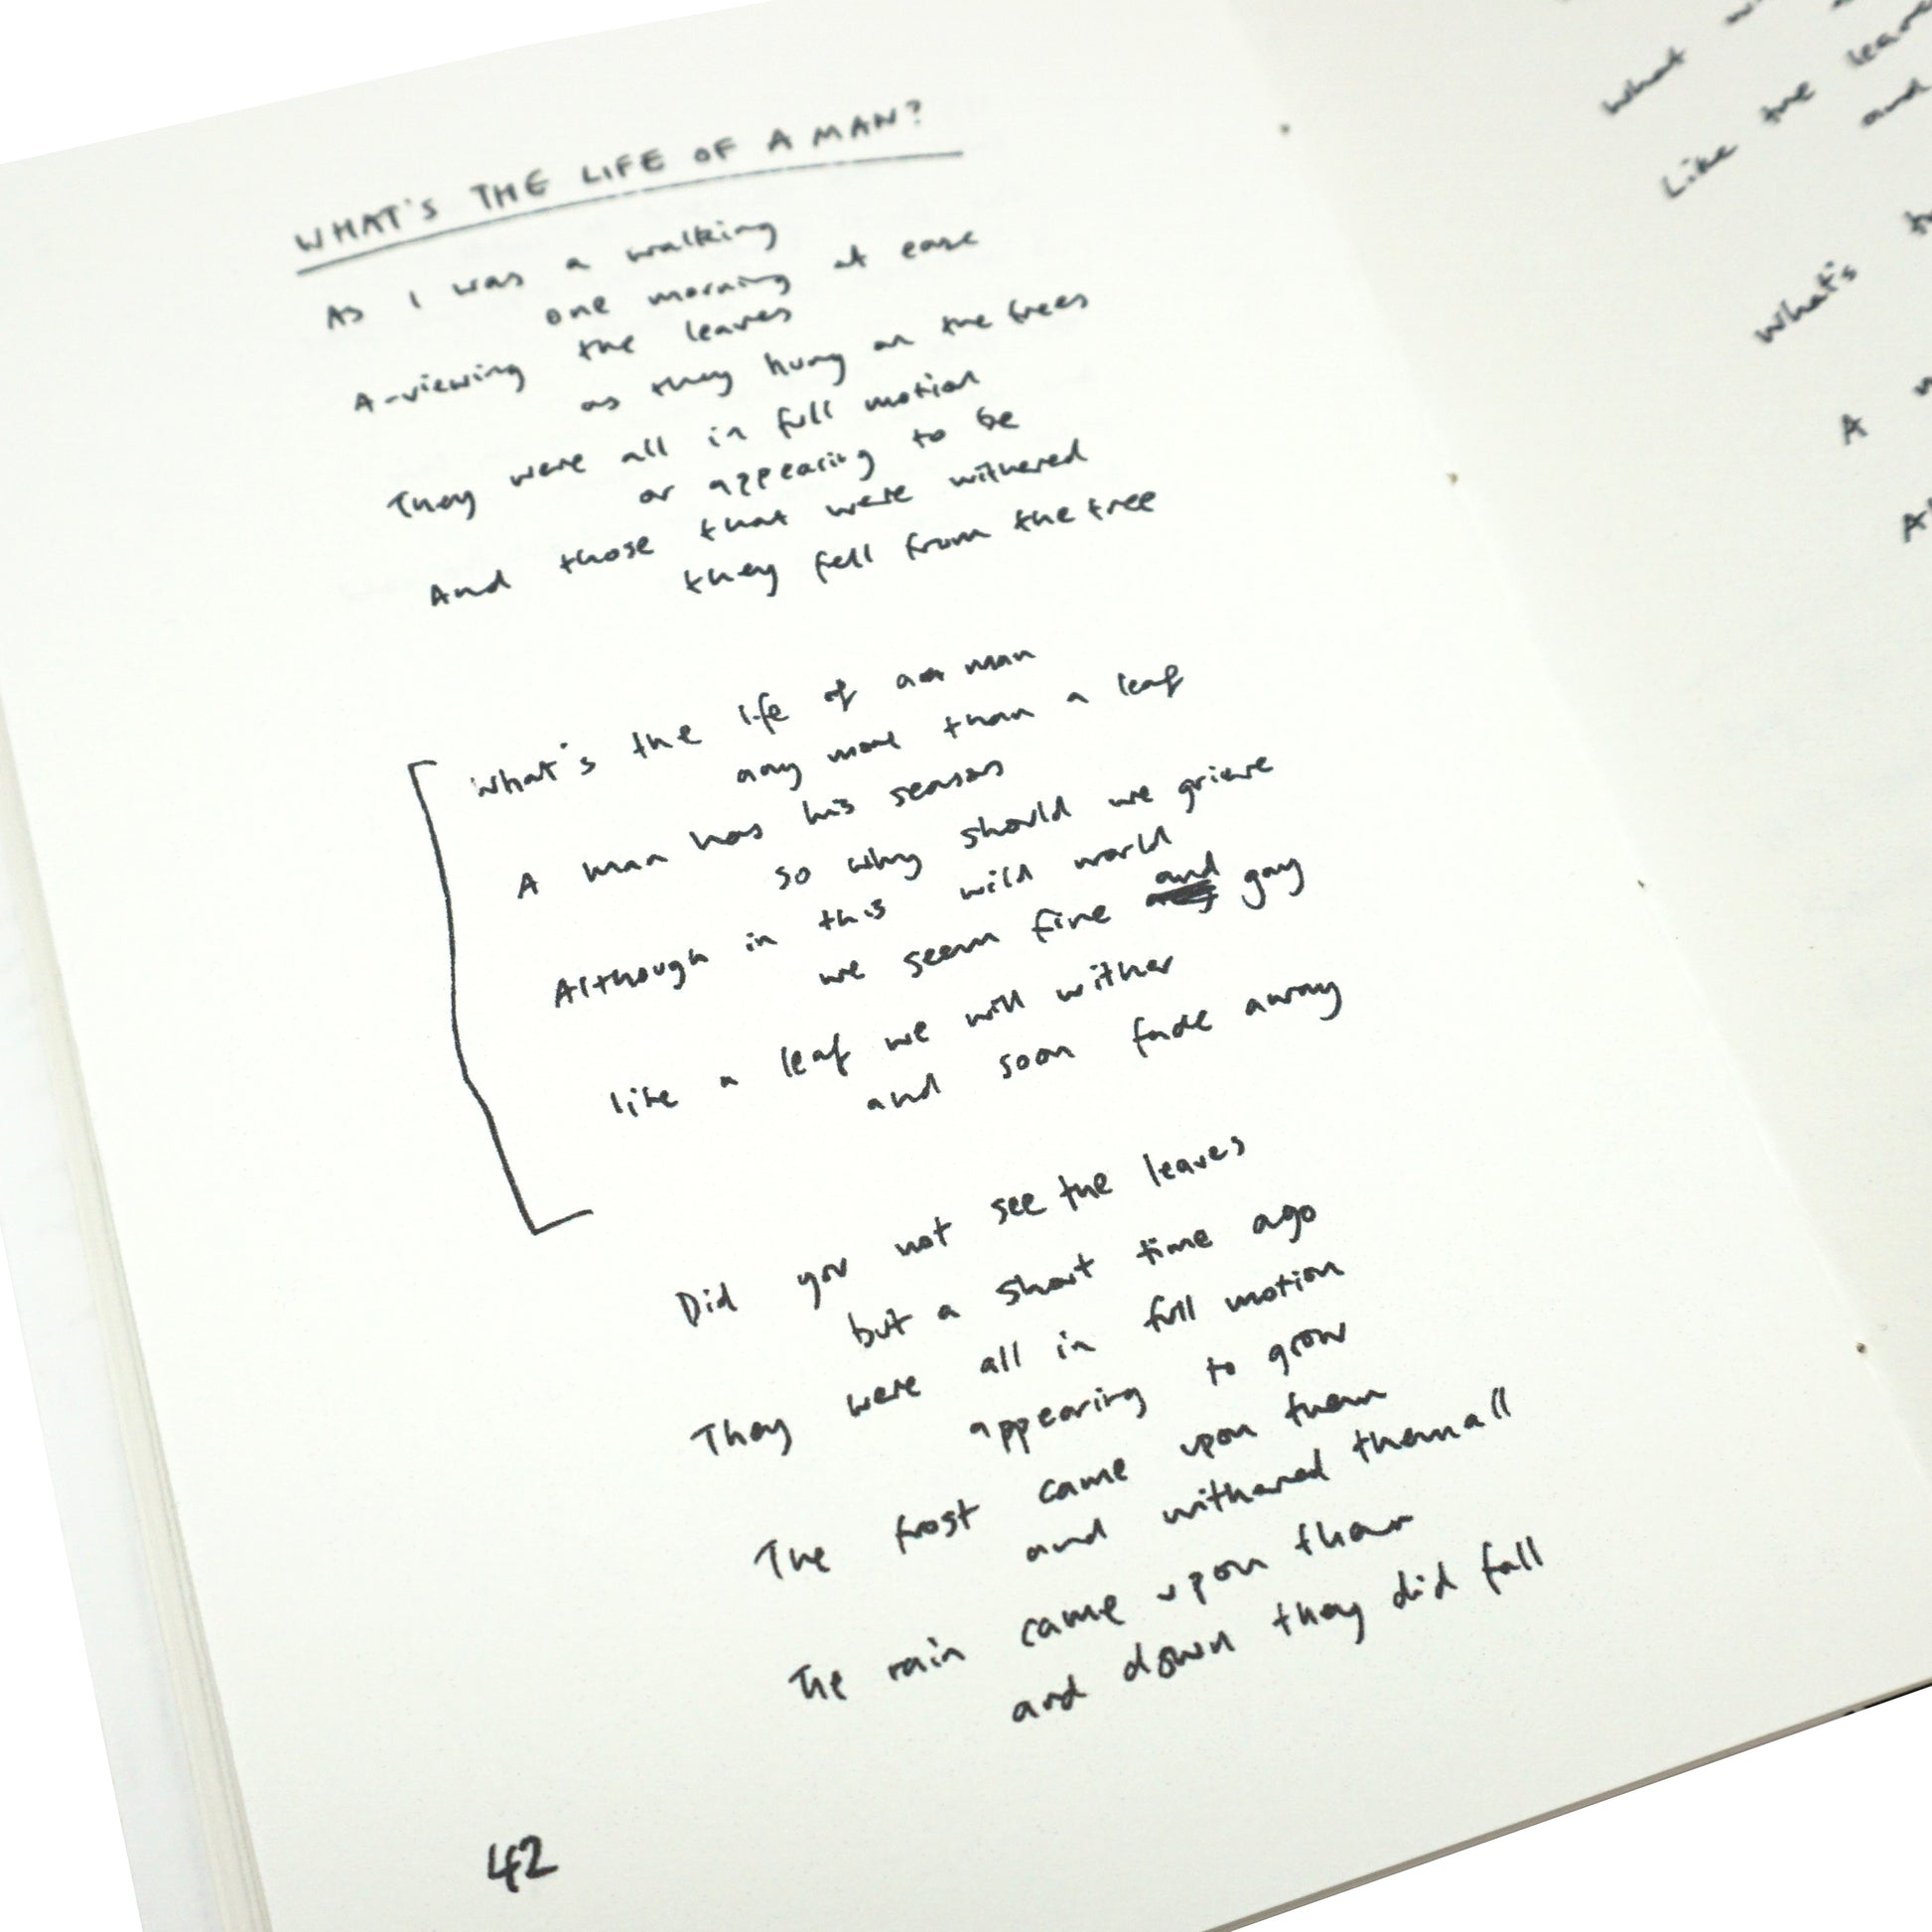 WHAT'S THE LIFE OF A MAN?
As I was a walking
one morning at ease
A-viewing the leaves
as they hung on the trees
They were all in full motion
or appearing to be
And those that were withered
they fell from the tree
What's the life of a man
any more than a leaf
A man has his season
so why should we grieve
Although in this wild world
we seem fine and gay
like a leaf we will wither
and soon fade away
Did you not see the leaves
but a short time ago
They were all in full motion
appearing to grow
The frost came upon them
and withered them all
The rain came upon them
and down they did fall
42
what
Like the
and
What's
A